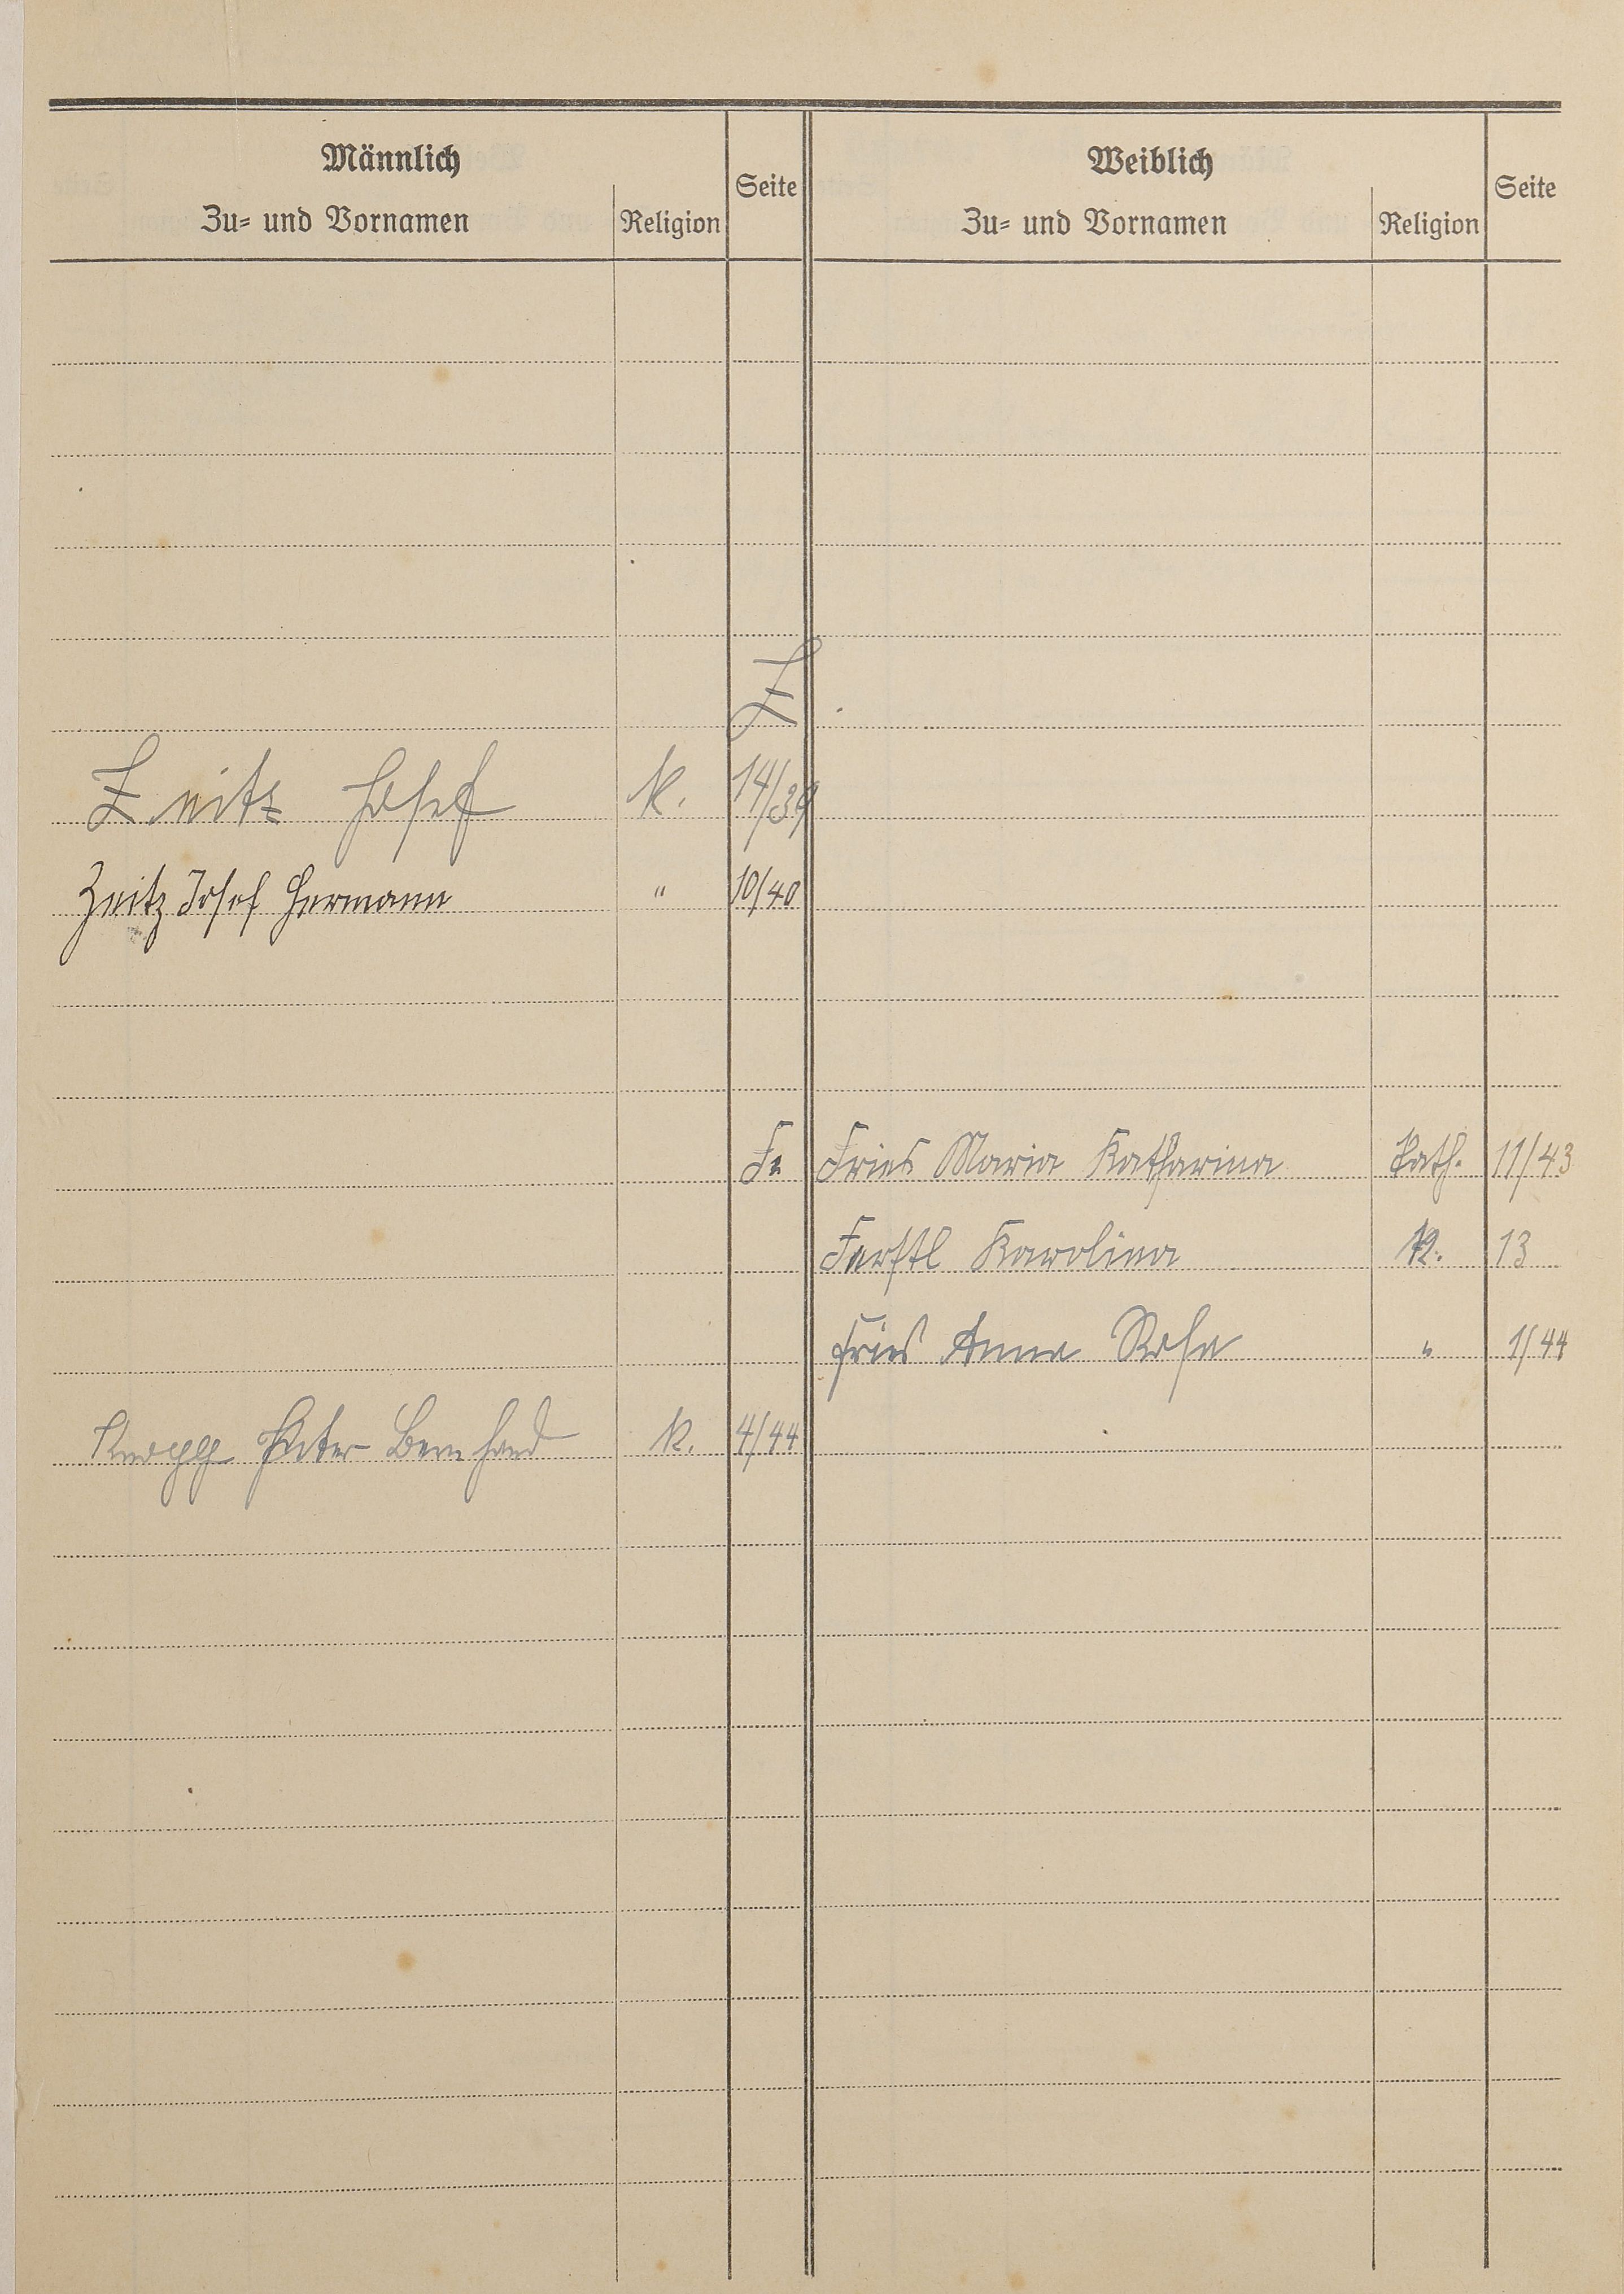 Männlich Weiblich
Zu= und Vornamen Religion Seite Zu= und Vornamen Religion Seite
Z
Zeitz Josef K. 14/39
Zeitz Josef Hermann " 10/40
Fr Fries Maria Katharina Kath. 11/43
Ferstl Karolina K. 13
Fries Anna Rosa " 1/44
Knopp Peter Bernhard K. 4/44